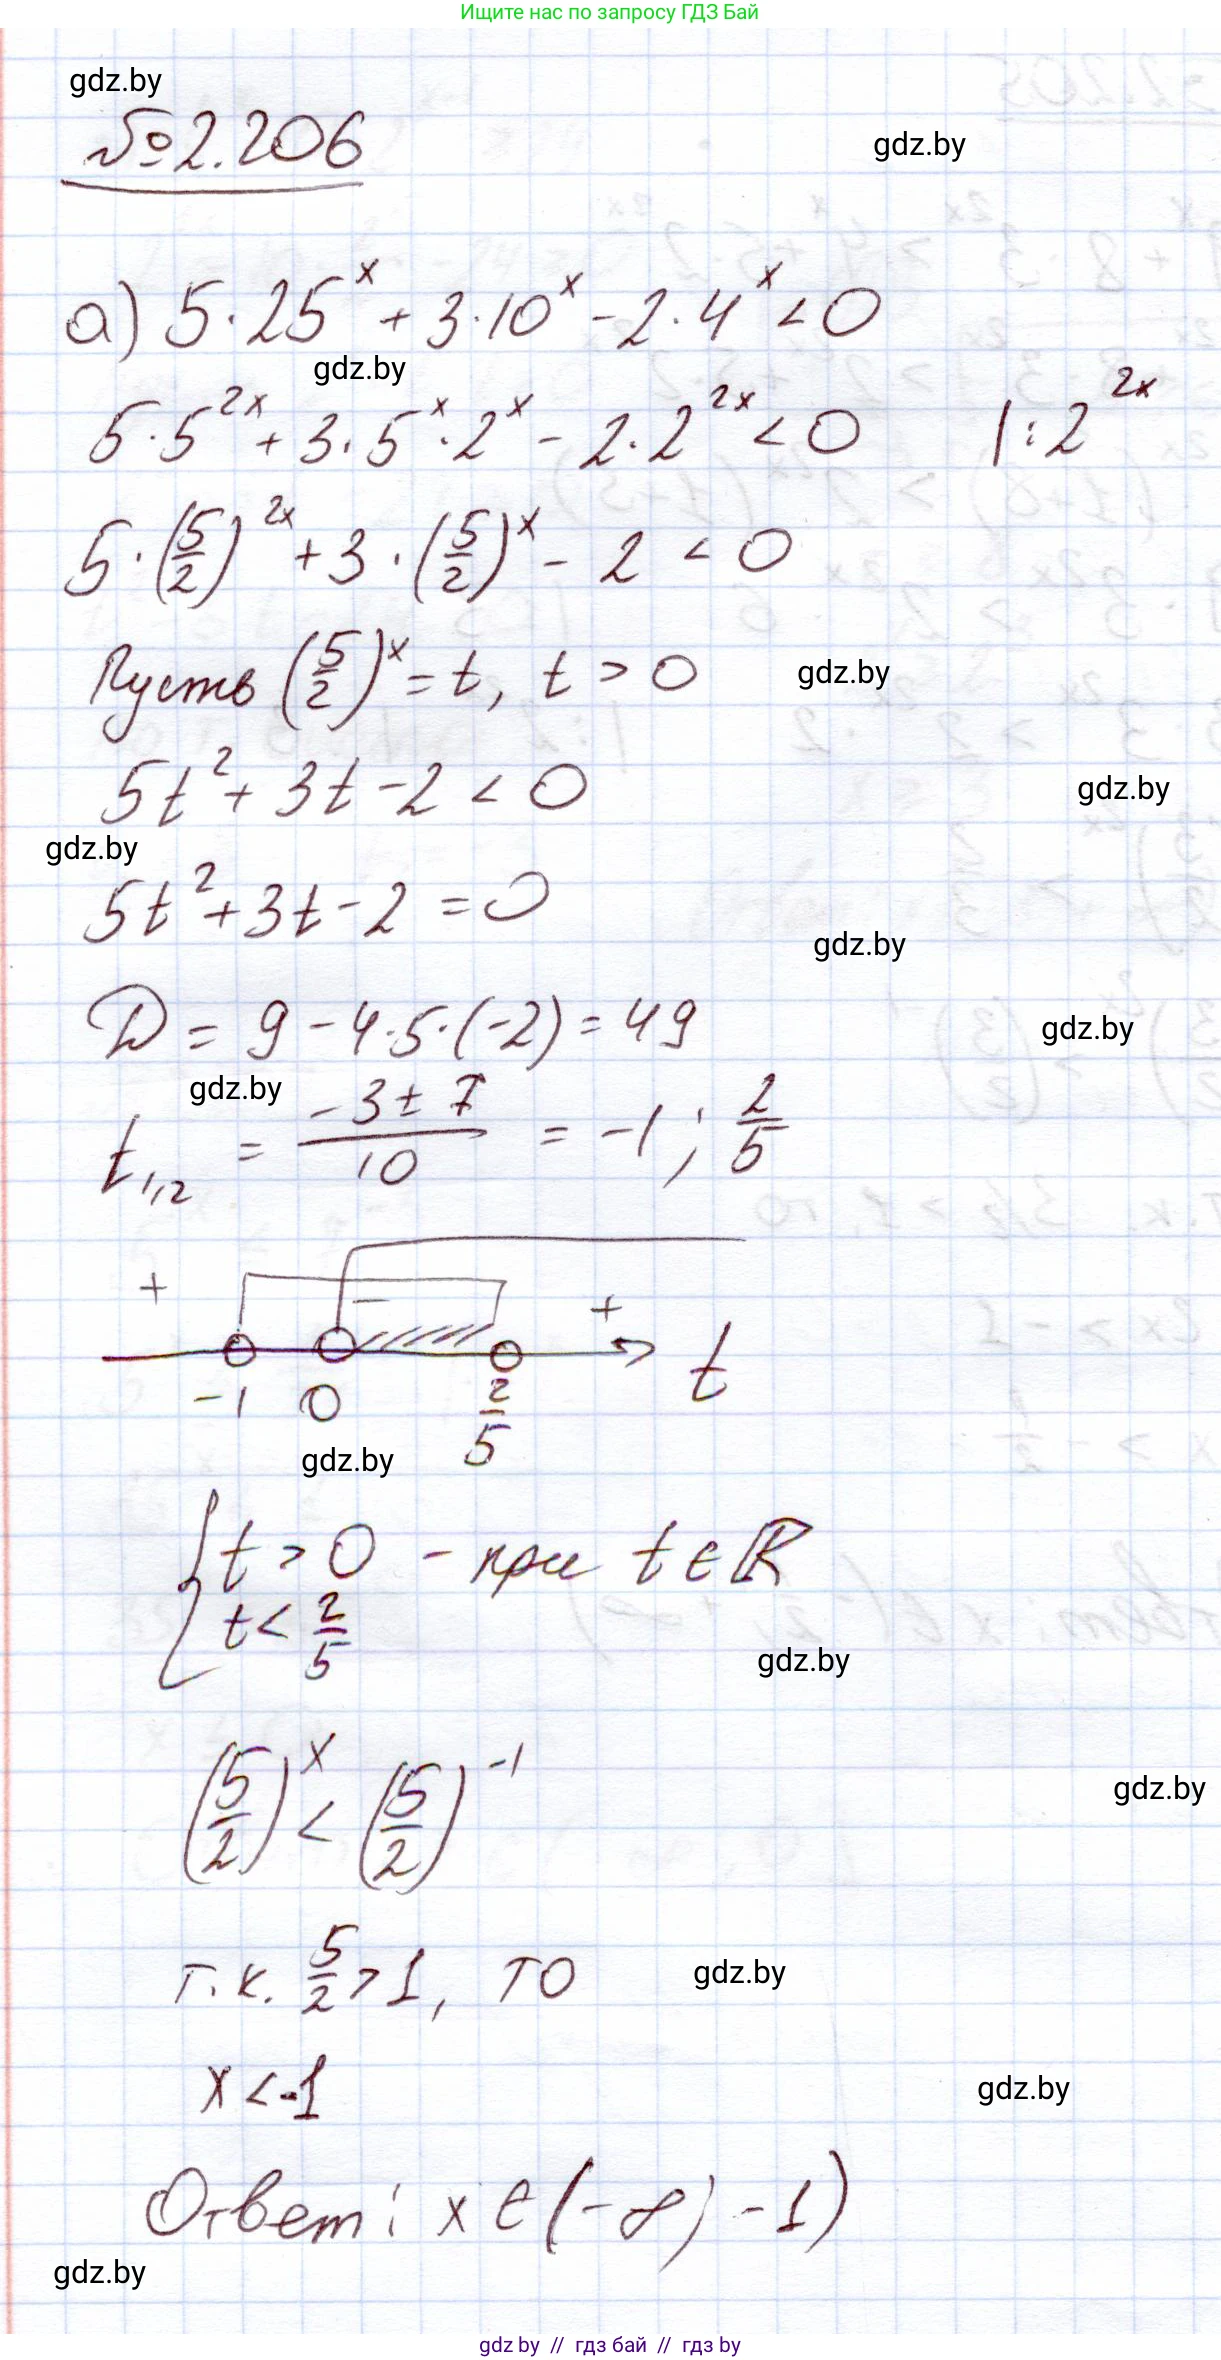 Ищите нас по запросу ГДЗ Бай
gdz.by
№2.206
gdz.by
а) 5·25^x + 3·10^x - 2·4^x < 0
gdz.by
5·5^{2x} + 3·5^x·2^x - 2·2^{2x} < 0 |:2^{2x}
5·(5/2)^{2x} + 3·(5/2)^x - 2 < 0
Пусть (5/2)^x = t, t > 0
gdz.by
5t² + 3t - 2 < 0
gdz.by
gdz.by
5t² + 3t - 2 = 0
gdz.by
D = 9 - 4·5·(-2) = 49
gdz.by
gdz.by
t_{1,2} = (-3 ± 7)/10 = -1; 2/5
+ - +
-1 0 2/5 t
gdz.by
{ t > 0 - при t ∈ ℝ
t < 2/5
gdz.by
(5/2)^x < (5/2)^{-1}
gdz.by
т.к. 5/2 > 1, то
gdz.by
x < -1
gdz.by
Ответ: x ∈ (-∞; -1)
gdz.by
gdz by // гдз бай // gdz by